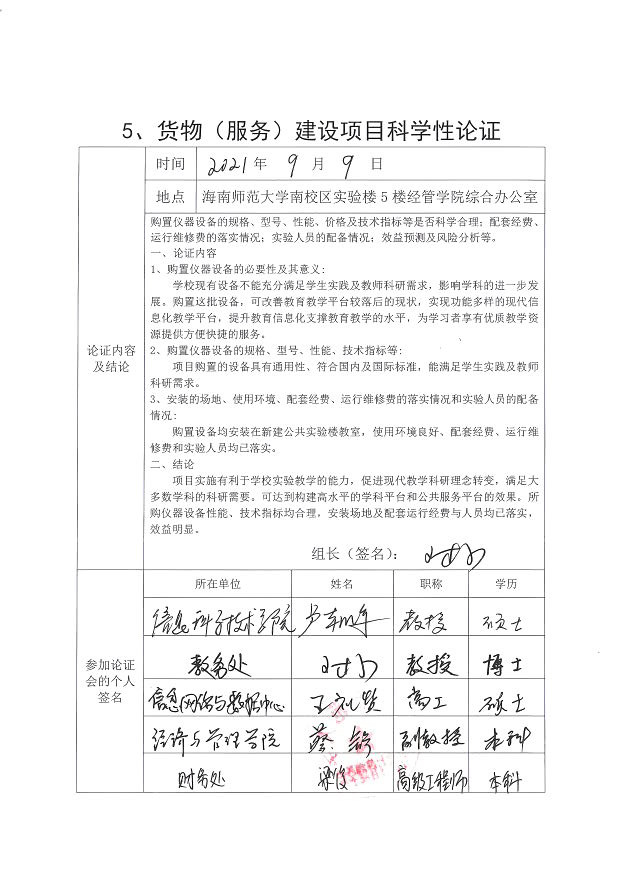 5、货物（服务）建设项目科学性论证
时间 2021年 9 月 9 日
地点 海南师范大学南校区实验楼5楼经管学院综合办公室
论证内容
及结论
购置仪器设备的规格、型号、性能、价格及技术指标等是否科学合理；配套经费、
运行维修费的落实情况；实验人员的配备情况；效益预测及风险分析等。
一、论证内容
1、购置仪器设备的必要性及其意义:
学校现有设备不能充分满足学生实践及教师科研需求，影响学科的进一步发
展。购置这批设备，可改善教育教学平台较落后的现状，实现功能多样的现代信
息化教学平台，提升教育信息化支撑教育教学的水平，为学习者享有优质教学资
源提供方便快捷的服务。
2、购置仪器设备的规格、型号、性能、技术指标等:
项目购置的设备具有通用性、符合国内及国际标准，能满足学生实践及教师
科研需求。
3、安装的场地、使用环境、配套经费、运行维修费的落实情况和实验人员的配备
情况:
购置设备均安装在新建公共实验楼教室，使用环境良好、配套经费、运行维
修费和实验人员均已落实。
二、结论
项目实施有利于学校实验教学的能力，促进现代教学科研理念转变，满足大
多数学科的科研需要。可达到构建高水平的学科平台和公共服务平台的效果。所
购仪器设备性能、技术指标均合理，安装场地及配套运行经费与人员均已落实，
效益明显。
组长（签名）：
参加论证
会的个人
签名
所在单位 姓名 职称 学历
信息科学技术学院 教授 硕士
教务处 教授 博士
信息网络与数据中心 王礼贤 高工 硕士
经济与管理学院 蔡 副教授 本科
财务处 梁俊 高级工程师 本科